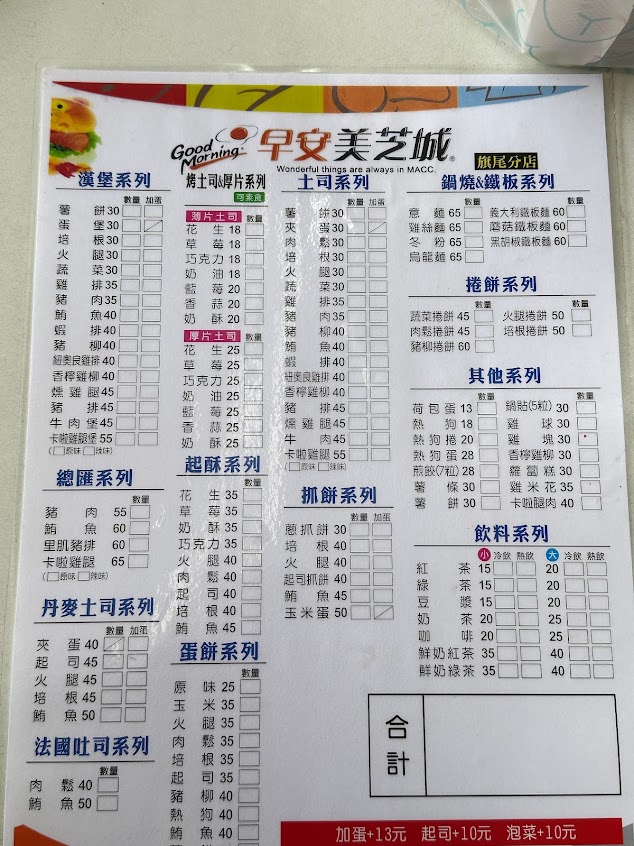 Good Morning
早安美芝城®
Wonderful things are always in MACC.
旗尾分店
漢堡系列
數量 加蛋
薯餅 30
蛋堡 30
培根 30
火腿 30
蔬菜 30
雞排 35
豬肉 35
鮪魚 40
蝦排 40
豬柳 40
紐奧良雞排 40
香檸雞柳 40
燻雞腿 45
豬排 45
牛肉堡 45
卡啦雞腿堡 55
(□原味 □辣味)
總匯系列
數量
豬肉 55
鮪魚 60
里肌豬排 60
卡啦雞腿 65
(□原味 □辣味)
丹麥土司系列
數量 加蛋
夾蛋 40
起司 45
火腿 45
培根 45
鮪魚 50
法國吐司系列
數量
肉鬆 40
鮪魚 50
烤土司&厚片系列
可素食
薄片土司 數量
花生 18
草莓 18
巧克力 18
奶油 18
藍莓 20
香蒜 20
奶酥 20
厚片土司 數量
花生 25
草莓 25
巧克力 25
奶油 25
藍莓 25
香蒜 25
奶酥 25
起酥系列
數量
花生 35
草莓 35
奶酥 35
巧克力 35
火腿 40
肉鬆 40
起司 40
培根 40
鮪魚 45
蛋餅系列
數量
原味 25
玉米 35
火腿 35
肉鬆 35
培根 35
起司 35
豬柳 40
熱狗 40
鮪魚 40
土司系列
數量 加蛋
薯餅 30
夾蛋 30
肉鬆 30
培根 30
火腿 30
蔬菜 30
雞排 35
豬肉 35
豬柳 40
鮪魚 40
蝦排 40
紐奧良雞排 40
香檸雞柳 40
豬排 45
燻雞腿 45
牛肉 45
卡啦雞腿 55
(□原味 □辣味)
抓餅系列
數量 加蛋
蔥抓餅 30
培根 40
火腿 40
起司抓餅 40
鮪魚 45
玉米蛋 50
鍋燒&鐵板系列
數量 數量
意麵 65 義大利鐵板麵 60
雞絲麵 65 蘑菇鐵板麵 60
冬粉 65 黑胡椒鐵板麵 60
烏龍麵 65
捲餅系列
數量 數量
蔬菜捲餅 45 火腿捲餅 50
肉鬆捲餅 45 培根捲餅 50
豬柳捲餅 60
其他系列
數量 數量
荷包蛋 13 鍋貼(5粒) 30
熱狗 18 雞球 30
熱狗捲 20 雞塊 30
熱狗蛋 28 香檸雞柳 30
煎餃(7粒) 28 蘿蔔糕 30
薯條 30 雞米花 35
薯餅 30 卡啦腿肉 40
飲料系列
小 冷飲 熱飲 大 冷飲 熱飲
紅茶 15 20
綠茶 15 20
豆漿 15 20
奶茶 20 25
咖啡 20 25
鮮奶紅茶 35 40
鮮奶綠茶 35 40
合計
加蛋+13元 起司+10元 泡菜+10元